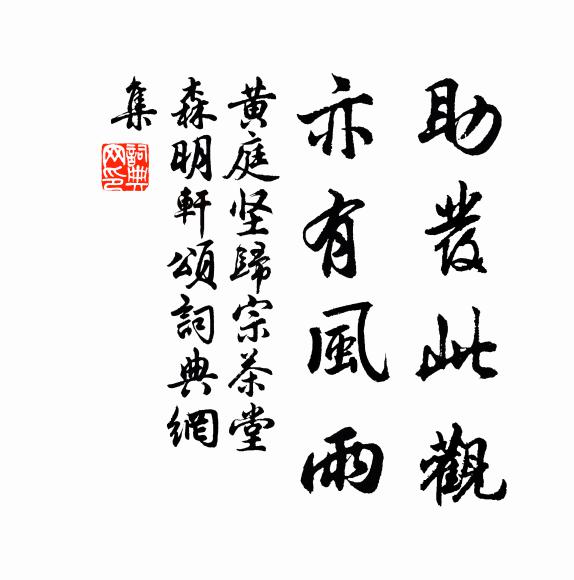 助發此觀
亦有風雨
黄庭坚歸宗茶堂
森明軒頌詞典網
集
詞典網印